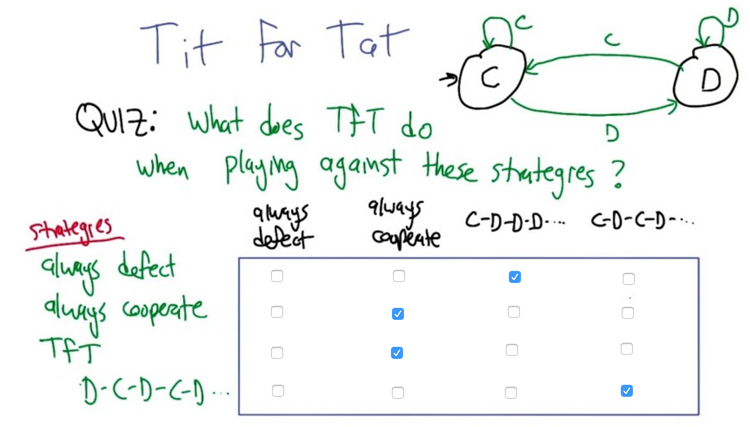 Tit for Tat
C
C
D
C
D
D
QUIZ: What does TFT do
when playing against these strategies?
strategies
always defect
always cooperate
C-D-D-D-...
C-D-C-D-...
always defect
always cooperate
TFT
D-C-D-C-D...